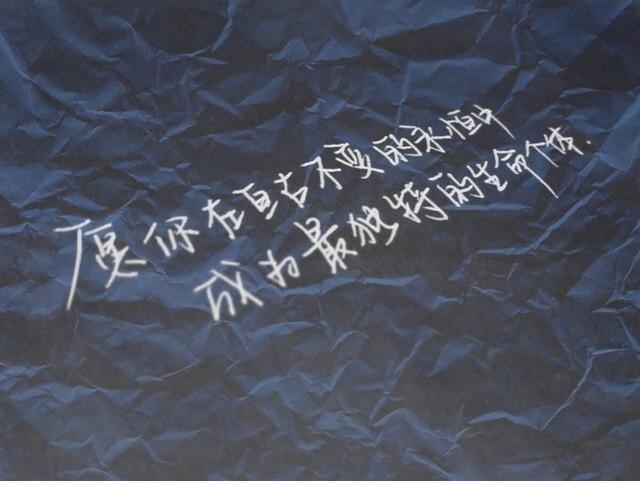 愿你在亘古不变的永恒中
成为最独特的生命个体.